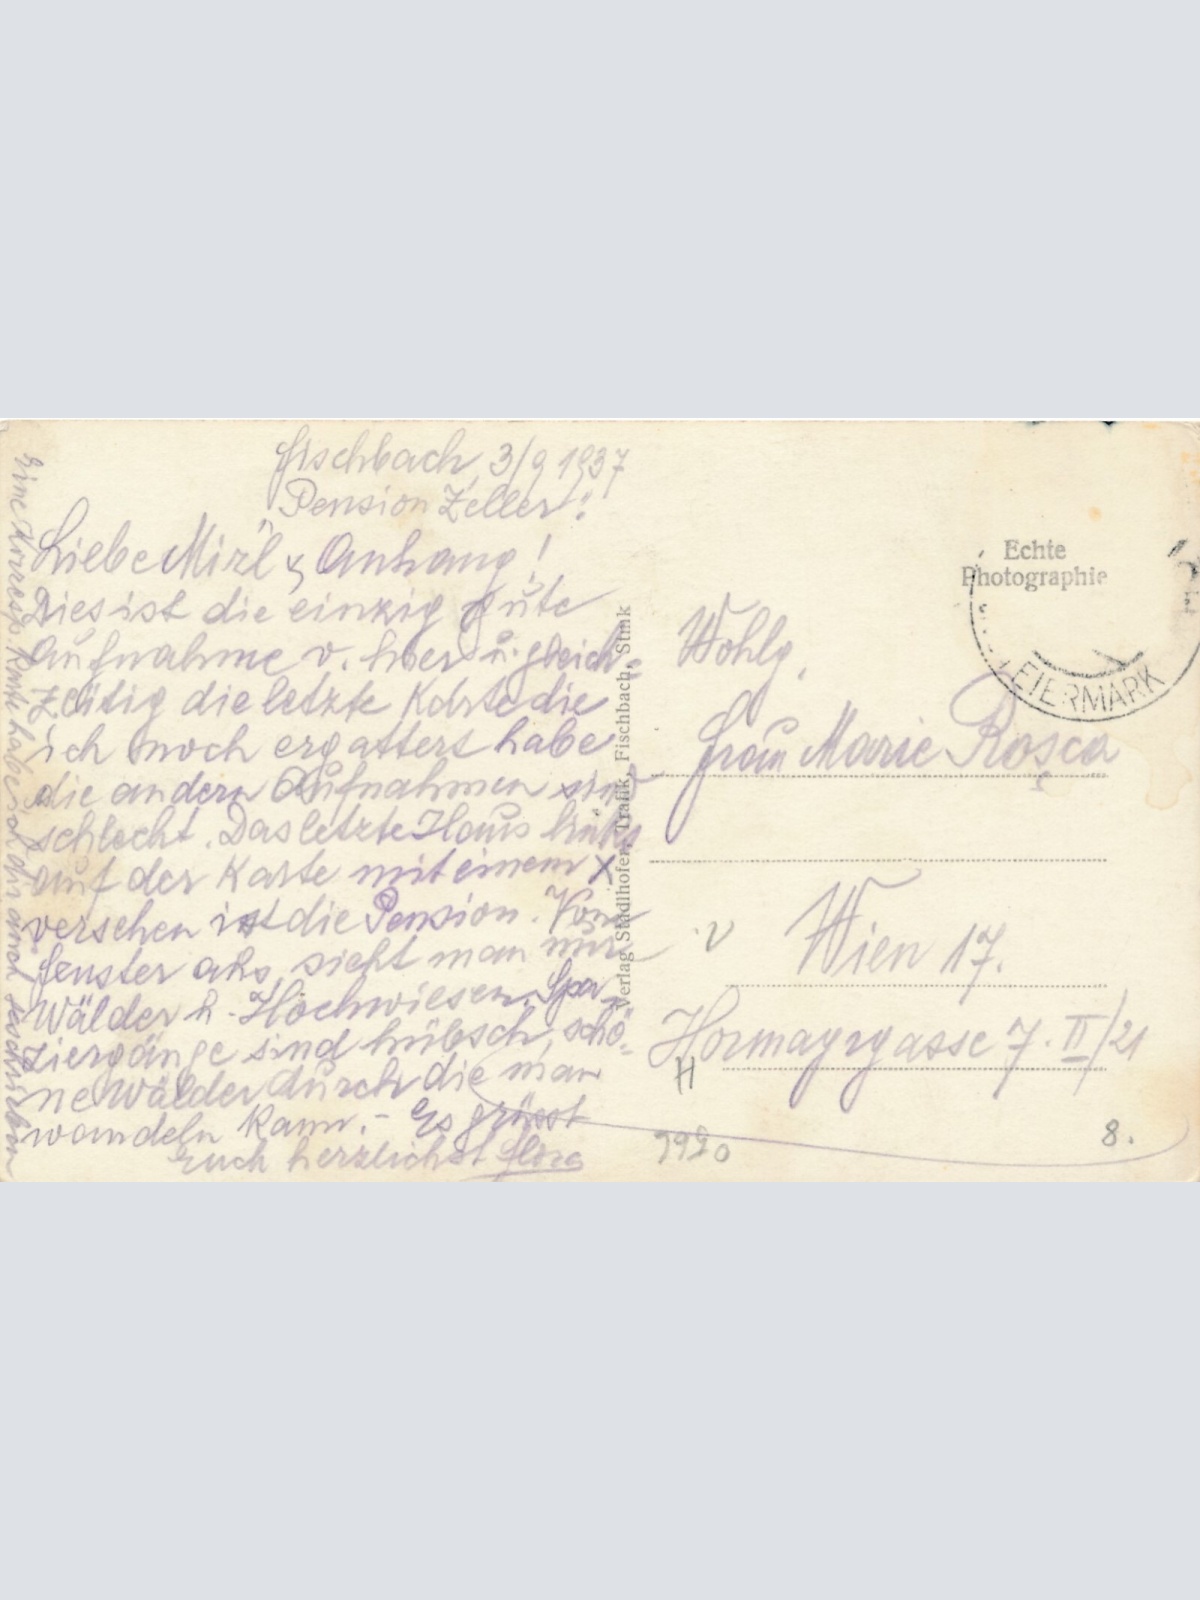 Fischbach, 3/9 1937
Pension Zeller!
Liebe Mirl u. Anhang!
Dies ist die einzig gute
Aufnahme v. hier u. gleich-
zeitig die letzte Karte die
ich noch ergattert habe
die andern Aufnahmen sind
schlecht. Das letzte Haus links
auf der Karte mit einem X
versehen ist die Pension. Vom
Fenster aus, sieht man nur
Wälder u. Hochwiesen. Spa-
ziergänge sind hübsch, schö-
ne Wälder durch die man
wandeln kann. - Es grüsst
Euch herzlichst
Eine Korresp. Karte habe ich dir auch
Verlag Stadlhofer, Trafik, Fischbach, Stmk
Echte
Photographie
EIERMARK
Wohlg.
Frau Marie Rosca
Wien 17.
Hormayrgasse 7. II/21
H
8.